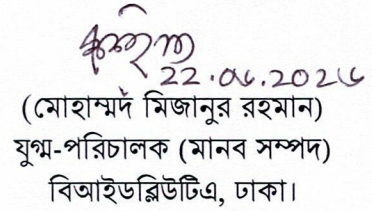 22.06.2026
(মোহাম্মদ মিজানুর রহমান)
যুগ্ম-পরিচালক (মানব সম্পদ)
বিআইডব্লিউটিএ, ঢাকা।